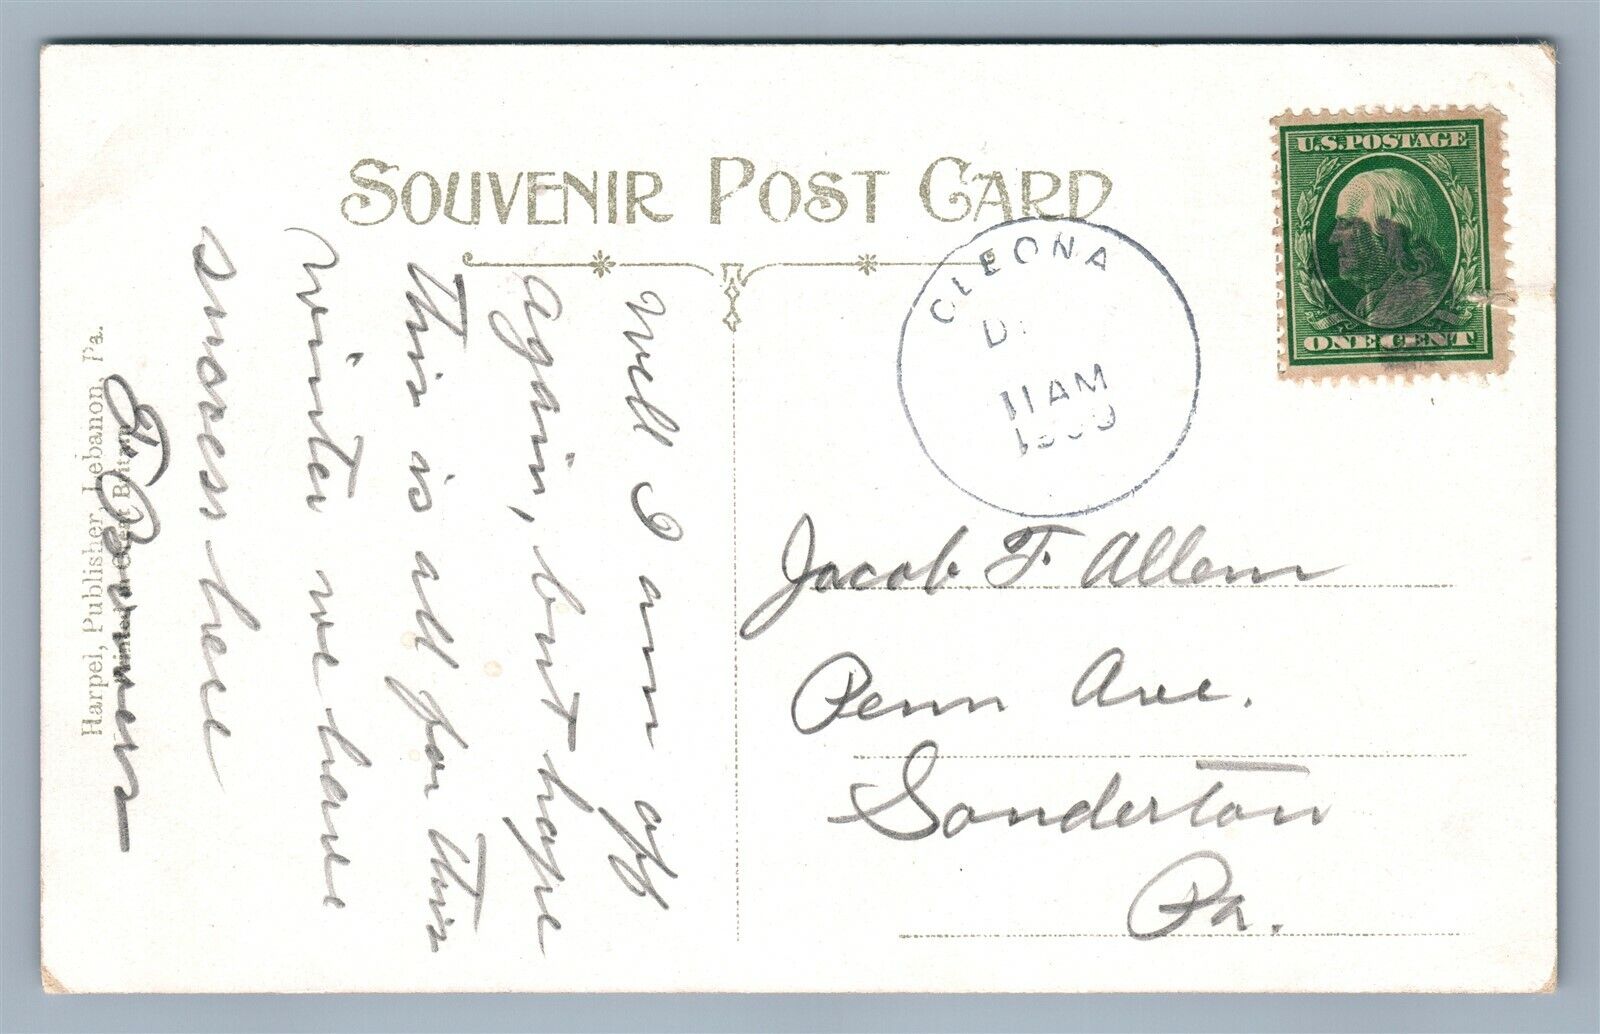 SOUVENIR POST CARD
U.S. POSTAGE
ONE CENT
CLEONA
D
11 AM
1909
Well I am off
again, but hope
this is all for this
winter we have
here
Jacob F. Allem
Penn Ave.
Sonderton
Pa.
Harpel, Publisher, Lebanon, Pa.